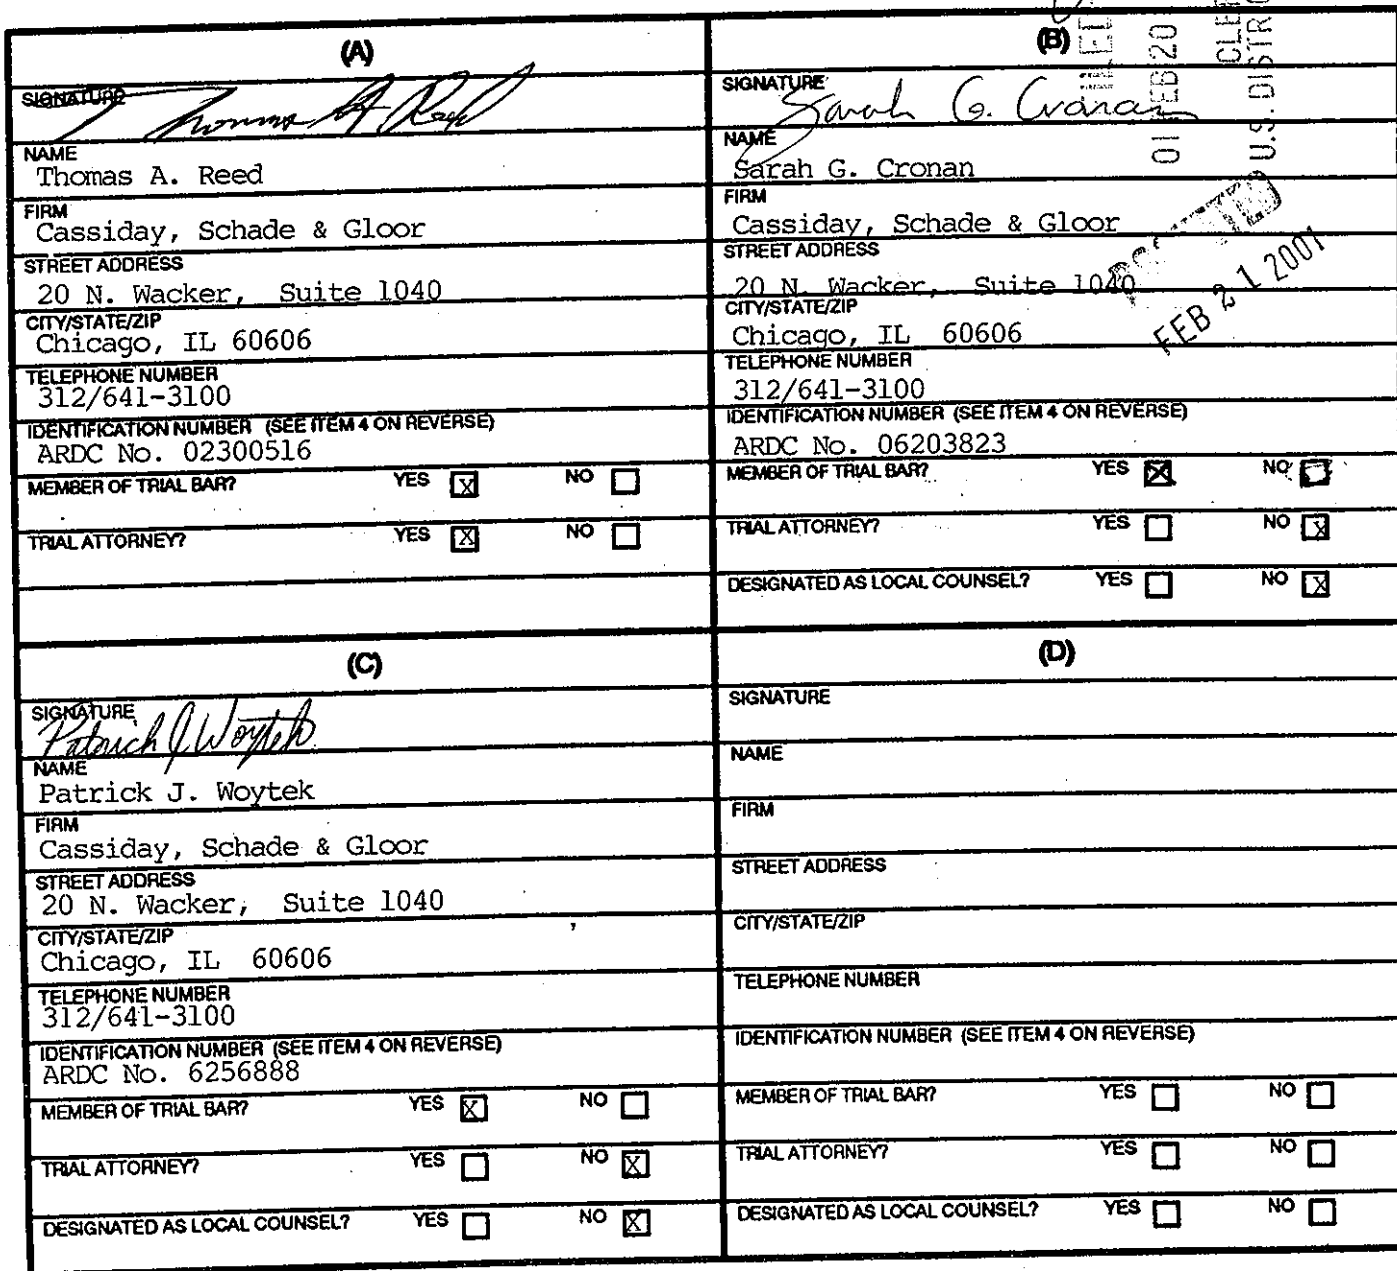 (A)
SIGNATURE
Thomas A. Reed
NAME
Thomas A. Reed
FIRM
Cassiday, Schade & Gloor
STREET ADDRESS
20 N. Wacker, Suite 1040
CITY/STATE/ZIP
Chicago, IL 60606
TELEPHONE NUMBER
312/641-3100
IDENTIFICATION NUMBER (SEE ITEM 4 ON REVERSE)
ARDC No. 02300516
MEMBER OF TRIAL BAR? YES X NO
TRIAL ATTORNEY? YES X NO
(B)
SIGNATURE
Sarah G. Cronan
NAME
Sarah G. Cronan
FIRM
Cassiday, Schade & Gloor
STREET ADDRESS
20 N. Wacker, Suite 1040
CITY/STATE/ZIP
Chicago, IL 60606
TELEPHONE NUMBER
312/641-3100
IDENTIFICATION NUMBER (SEE ITEM 4 ON REVERSE)
ARDC No. 06203823
MEMBER OF TRIAL BAR? YES X NO
TRIAL ATTORNEY? YES NO X
DESIGNATED AS LOCAL COUNSEL? YES NO X
01 FEB 20
U.S. DISTR
FEB 21 2001
(C)
SIGNATURE
Patrick J Woytek
NAME
Patrick J. Woytek
FIRM
Cassiday, Schade & Gloor
STREET ADDRESS
20 N. Wacker, Suite 1040
CITY/STATE/ZIP
Chicago, IL 60606
TELEPHONE NUMBER
312/641-3100
IDENTIFICATION NUMBER (SEE ITEM 4 ON REVERSE)
ARDC No. 6256888
MEMBER OF TRIAL BAR? YES X NO
TRIAL ATTORNEY? YES NO X
DESIGNATED AS LOCAL COUNSEL? YES NO X
(D)
SIGNATURE
NAME
FIRM
STREET ADDRESS
CITY/STATE/ZIP
TELEPHONE NUMBER
IDENTIFICATION NUMBER (SEE ITEM 4 ON REVERSE)
MEMBER OF TRIAL BAR? YES NO
TRIAL ATTORNEY? YES NO
DESIGNATED AS LOCAL COUNSEL? YES NO